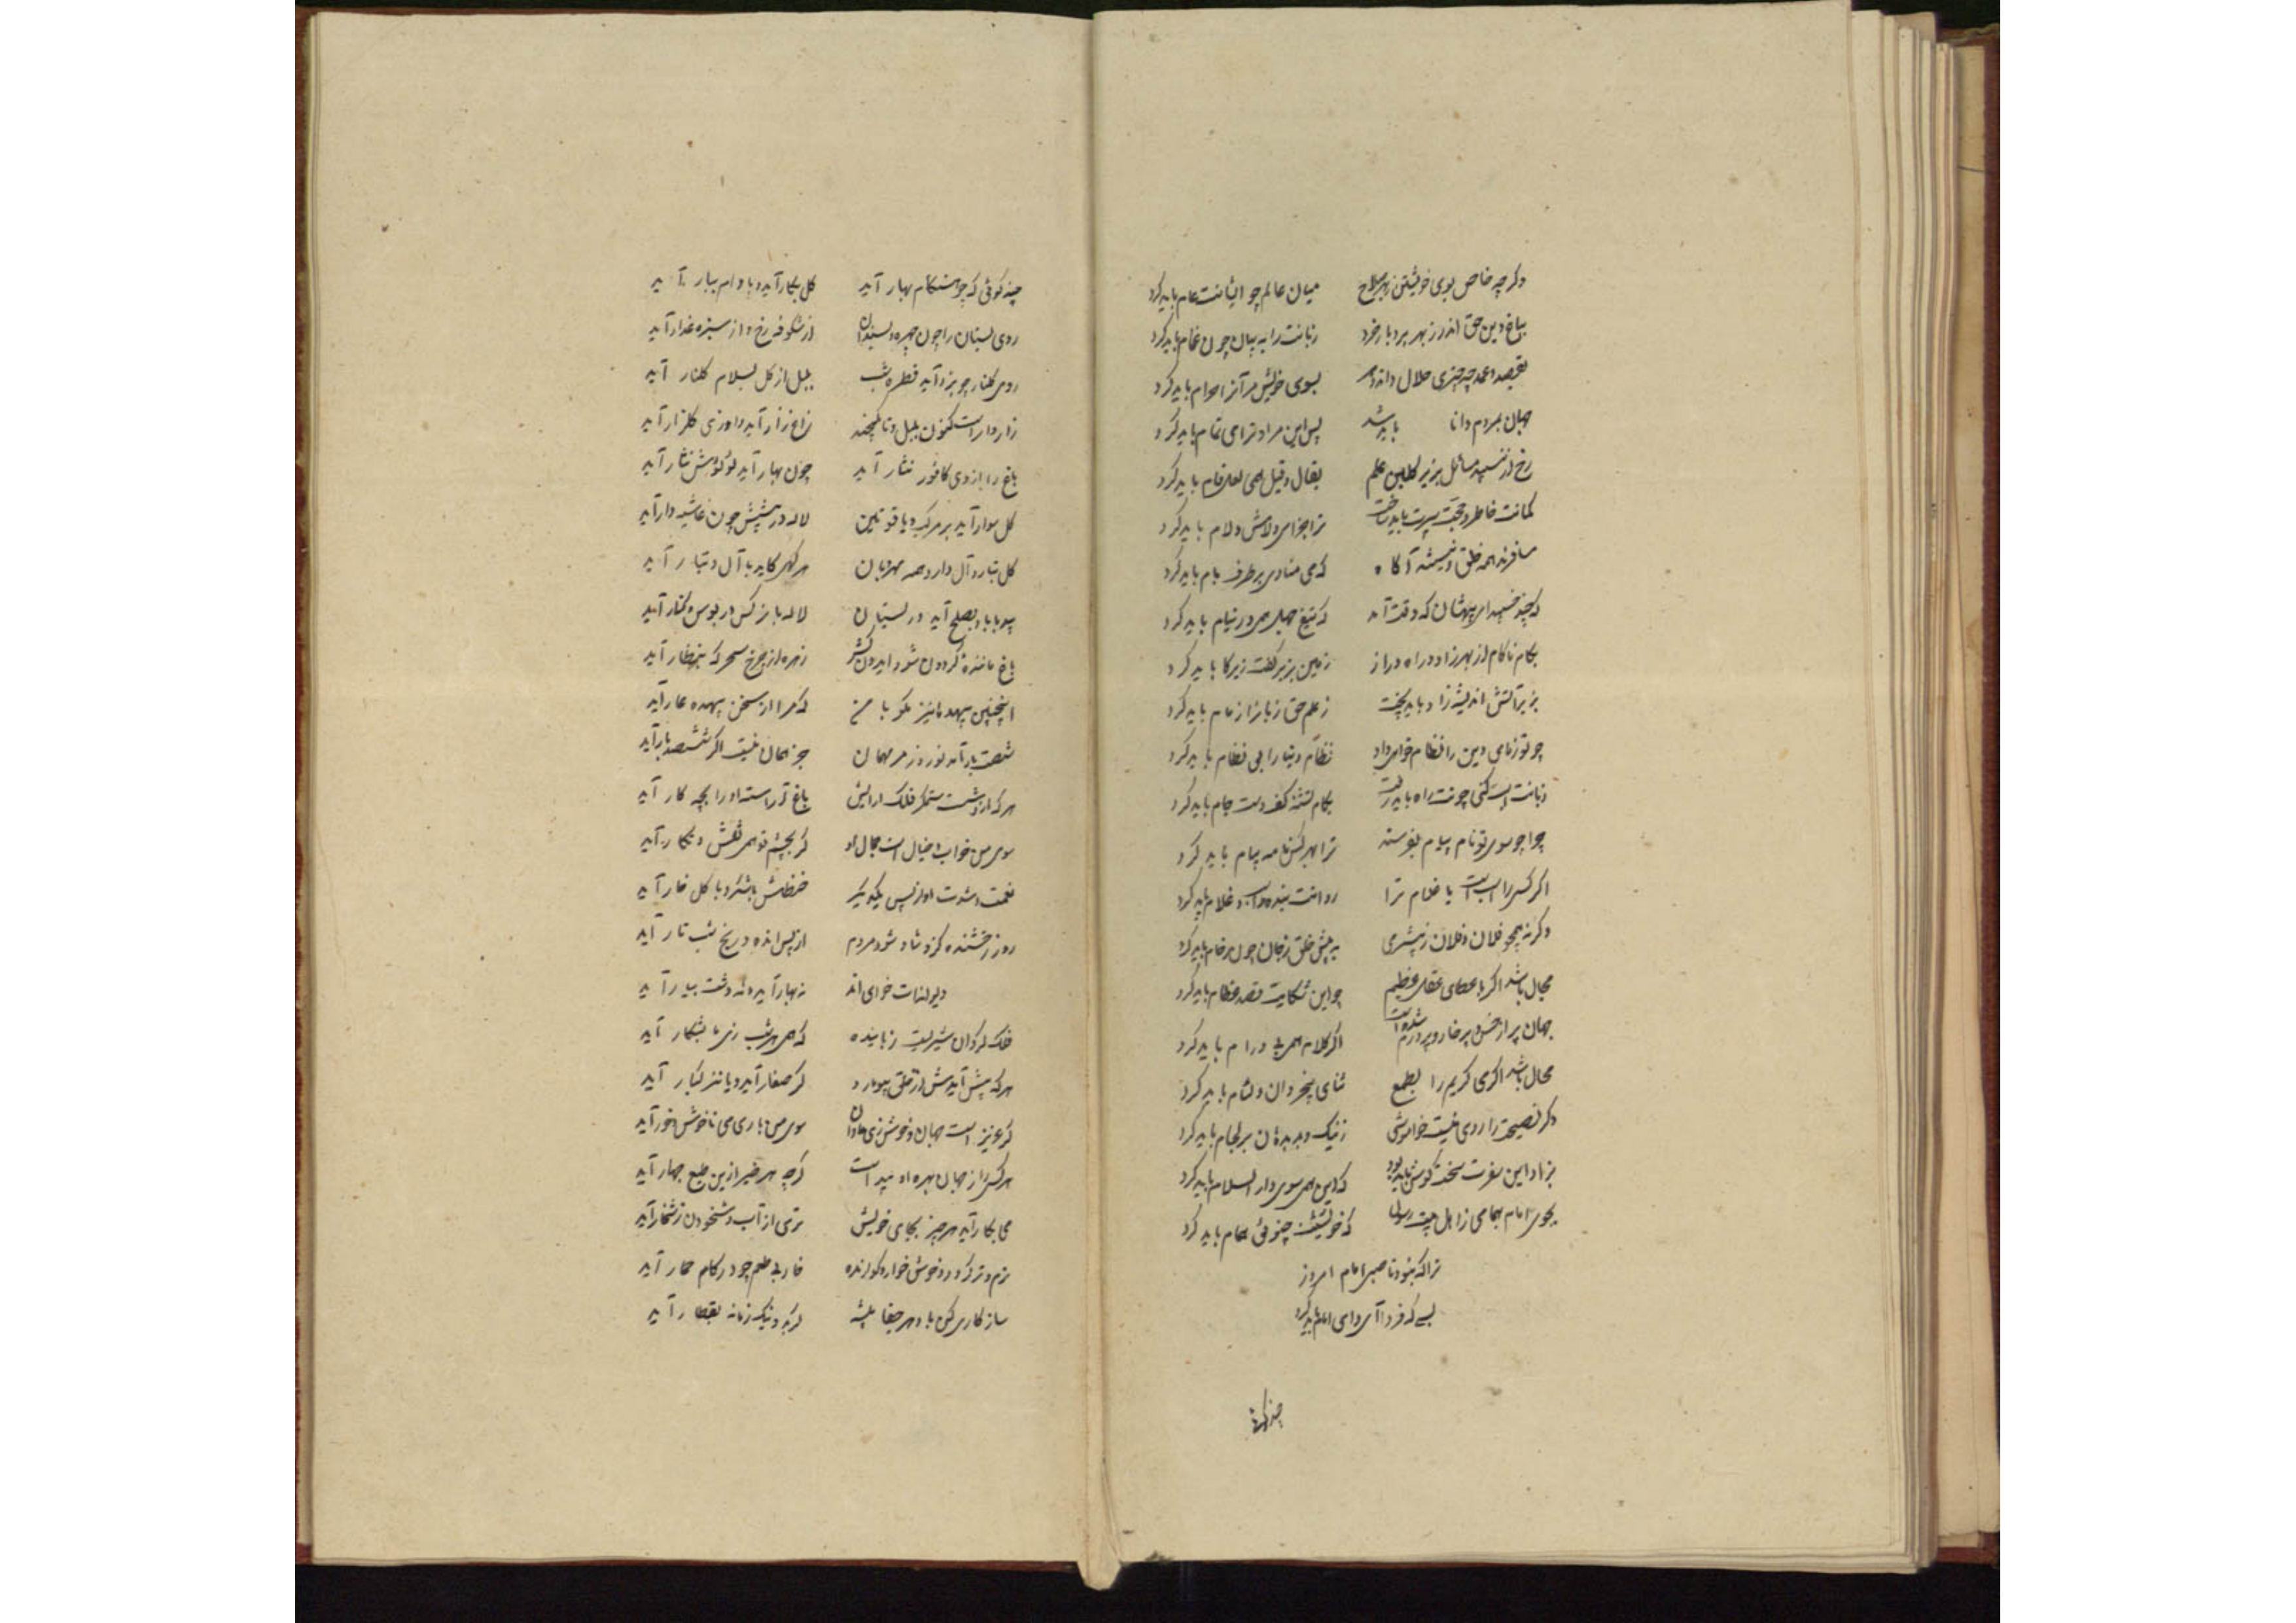 وکر چه خاص بوی خویشتن زبهر صلاح میان عالم چو انیانت عام باید کرد
بباغ دین حق اندر زبهر بر دبار خرد زبانت را به بیان چون غمام باید کرد
بقصد و عمد چه چیزی حلال دانند بسوی خویش مر آنرا حرام باید کرد
جهان بمردم دانا باید شد پس این مراد ترا می تمام باید کرد
مسائل بزیر کلبن علم بقال و قیل همی لعل فام باید کرد
کمانت خاطر و حجت سپرت باید ساخت ترا جزای دلامش ولام باید کرد
مسافرند همه خلق و نیستند آکاه که می منادی بر طرف بام باید کرد
که چند خسپید ای بیهشان که وقت آمد که تیغ جهل همی در نیام باید کرد
بکام ناکام از بهر زاد و راه دراز زمین بزیر کفت زیر کام باید کرد
بزیر آتش اندیشه زاد باید پخت ز علم حق زبانرا زمام باید کرد
چو توز نامی دین را نظام خواهی داد نظام دنیا را بی نظام باید کرد
زبانت اسب کنی چونت راه باید رفت بکام تشنه کف دست جام باید کرد
چرا چو سوی تو نام و پیام نفرستد ترا بهر کس نامه پیام باید کرد
اکر کسی را اسب است یا غلام ترا روانت بنده اسب و غلام باید کرد
وکر نه همچو فلان و فلان زبیشرمی به پیش خلق زجان چون خام باید کرد
محال باشد اکر با عطای عقل عظیم چو این شکایت قصد عظام باید کرد
جهان پر از خس و پر خار و پر ورم شده است اکر کلام همی بی ورام باید کرد
محال باشد اکر می کریم را بطمع ثنای بیخردان و لئام باید کرد
وکر نصیحت را روی نیست خاموشی ز نیک و بد دهان بر لجام باید کرد
بزاد این سفرت سخت کوش باید بود که این همی سوی دار السلام باید کرد
بجوی امام همامی ز اهل بیت رسول که خویشتنت چنوئی همام باید کرد
ترا که بنود ناصبی امام امروز
بسی که فردا آی وای امام باید کرد
چند کوئی
چند کوئی که چو هنکام بهار آید کل بکار آید و بادام ببار آید
روی بستان را چون چهره دلبندان از شکوفه رخ و از سبزه عذار آید
روی کلنار چو بزداید قطره شب بلبل از کل بسلام کلنار آید
زار وار است کنون بلبل و تا یکچند زاغ زار آید و او زی کلزار آید
باغ را از دی کافور نثار آید چون بهار آید لؤلؤش نثار آید
کل سوار آید بر مرکب و یاقوتین لاله در پیشش چون غاشیه دار آید
کل تبار و آل دارد همه مهرویان هر کهی کاید با آل و تبار آید
بید با باد بصلح آید در بستان لاله با نرکس در بوس و کنار آید
باغ ماننده کردون شود ایدون کش زهره از چرخ سحر که بنظار آید
اینچنین بیهده نیز مکو با من که مرا از سخن بیهده عار آید
شصت بار آمد نوروز مرا مهمان جز همان نیست اکر ششصد بار آید
هر که را شست ستمکر فلک آرایش باغ آراسته او را بچه کار آید
سوی من خواب و خیال است جمال او کر بچشم تو همی نقش و نکار آید
نعمت و شدت او از پس یکدیکر حنظلش با شکر و با کل خار آید
روز رخشنده کزو شاد شود مردم از پس انده و رنج شب تار آید
نه بهار آید و نه دشت ببار آید
فلک کردان شیریست رباینده که همی هر شب زی ما بشکار آید
هر که پیش آیدش از خلق بیوبارد کر صغار آید و یا نیز کبار آید
کر عزیز است جهان و خوش زی نادان سوی من باری می ناخوش و خوار آید
هر کسی را ز جهان بهره او پیداست کر چه هر خیر ازین طبع چهار آید
می بکار آید هر چیز بجای خویش تری از آب و شخودن ز شخار آید
نرم و تر کردد و خوش خوار و کوارنده خار بی طعم چو در کام حمار آید
سازکاری کن با دهر جفا پیشه که بد و نیک زمانه بقطار آید